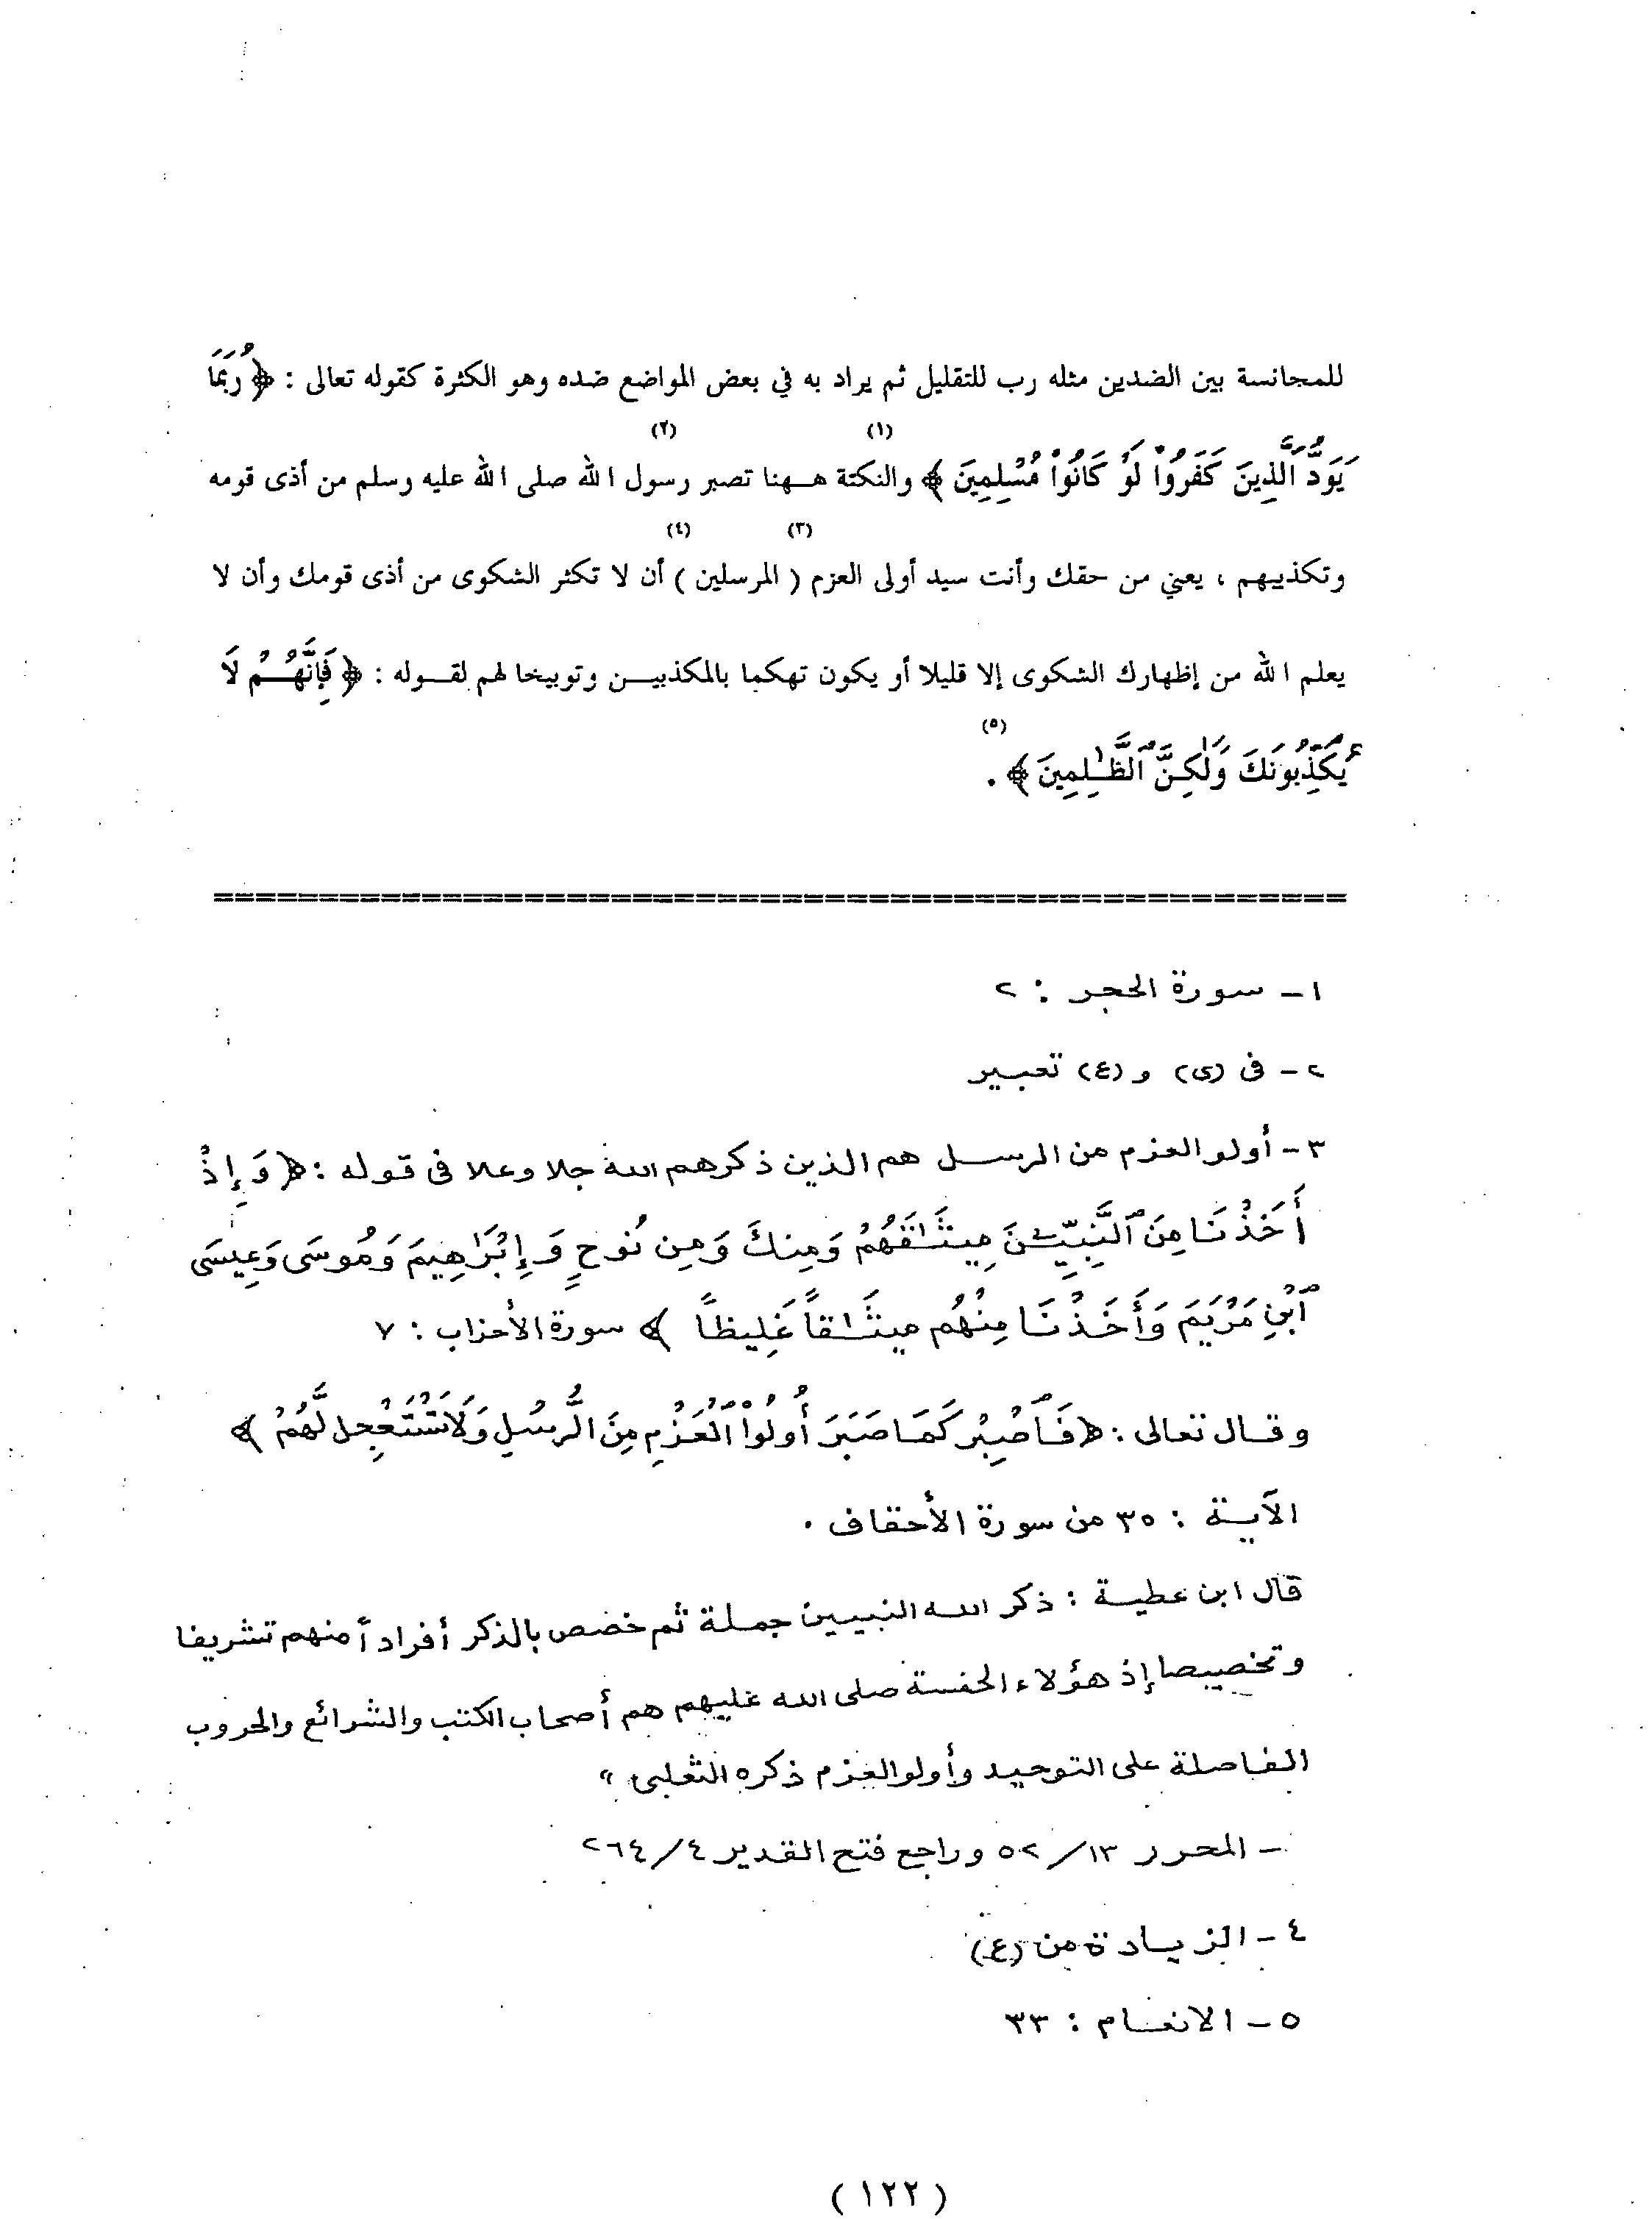 للمجانسة بين الضدين مثله رب للتقليل ثم يراد به في بعض المواضع ضده وهو الكثرة كقوله تعالى : ﴿ رُبَمَا
(١) (٢)
يَوَدُّ ٱلَّذِينَ كَفَرُوا۟ لَوْ كَانُوا۟ مُسْلِمِينَ ﴾ والنكتة هـهنا تصبر رسول الله صلى الله عليه وسلم من أذى قومه
(٣) (٤)
وتكذيبهم ، يعني من حقك وأنت سيد أولى العزم ( المرسلين ) أن لا تكثر الشكوى من أذى قومك وأن لا
يعلم الله من إظهارك الشكوى إلا قليلا أو يكون تهكما بالمكذبيـن وتوبيخا لهم لقـوله : ﴿ فَإِنَّهُمْ لَا
(٥)
يُكَذِّبُونَكَ وَلَٰكِنَّ ٱلظَّٰلِمِينَ ﴾ .
======================================================
١ - سورة الحجر : ٢
٢ - فى (ى) و (ع) تعبير
٣ - أولو العزم من الرسل هم الذين ذكرهم الله جلا وعلا فى قوله : ﴿ وَإِذْ
أَخَذْنَا مِنَ ٱلنَّبِيِّـۧنَ مِيثَٰقَهُمْ وَمِنكَ وَمِن نُوحٍ وَإِبْرَٰهِيمَ وَمُوسَى وَعِيسَى
ٱبْنِ مَرْيَمَ وَأَخَذْنَا مِنْهُم مِيثَٰقاً غَلِيظاً ﴾ سورة الأحزاب : ٧
وقال تعالى : ﴿ فَٱصْبِرْ كَمَا صَبَرَ أُو۟لُوا۟ ٱلْعَزْمِ مِنَ الرُّسُلِ وَلَا تَسْتَعْجِل لَّهُمْ ﴾
الآية : ٣٥ من سورة الأحقاف .
قال ابن عطية : ذكر الله النبيين جملة ثم خصص بالذكر أفراداً منهم تشريفا
وتخصيصا إذ هؤلاء الخمسة صلى الله عليهم هم أصحاب الكتب والشرائع والحروب
الفاصلة على التوحيد وأولو العزم ذكره الثعلبى "
- المحرر ١٣/ ٥٢ وراجع فتح القدير ٤/ ٢٦٤
٤ - الزيادة من (ع)
٥ - الانعام : ٣٣
( ١٢٢ )